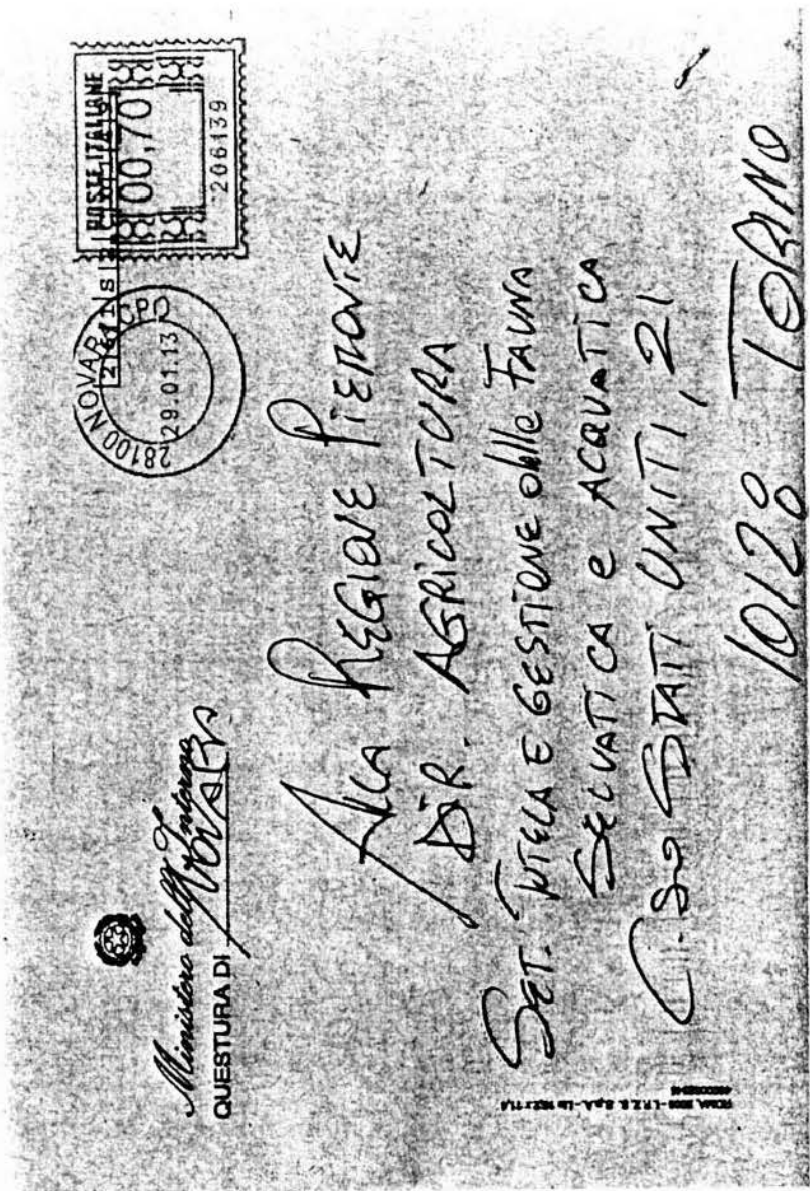 Ministero dell'Interno
QUESTURA DI NOVARA
28100 NOVARA CPO
29.01.13
POSTE ITALIANE
00,70
206139
Alla REGIONE PIEMONTE
DIR. AGRICOLTURA
SET. TUTELA E GESTIONE della FAUNA
SELVATICA e ACQUATICA
C.so STATI UNITI, 21
10128 TORINO